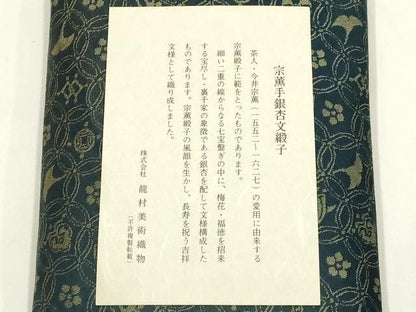 宗薫手銀杏文緞子
茶人・今井宗薫(一五五二〜一六二七)の愛用に由来する
宗薫緞子に範をとったものであります。
細い二重の線からなる七宝繋ぎの中に、梅花・福徳を招来
する宝尽し・裏千家の象徴である銀杏を配して文様構成した
ものであります。宗薫緞子の風韻を生かし、長寿を祝う吉祥
文様として織り成しました。
株式会社 龍村美術織物
(不許複製転載)